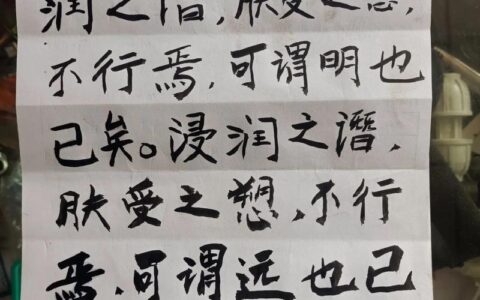 润之谮,肤受之愬,
不行焉,可谓明也
已矣。浸润之谮,
肤受之愬,不行
焉,可谓远也已